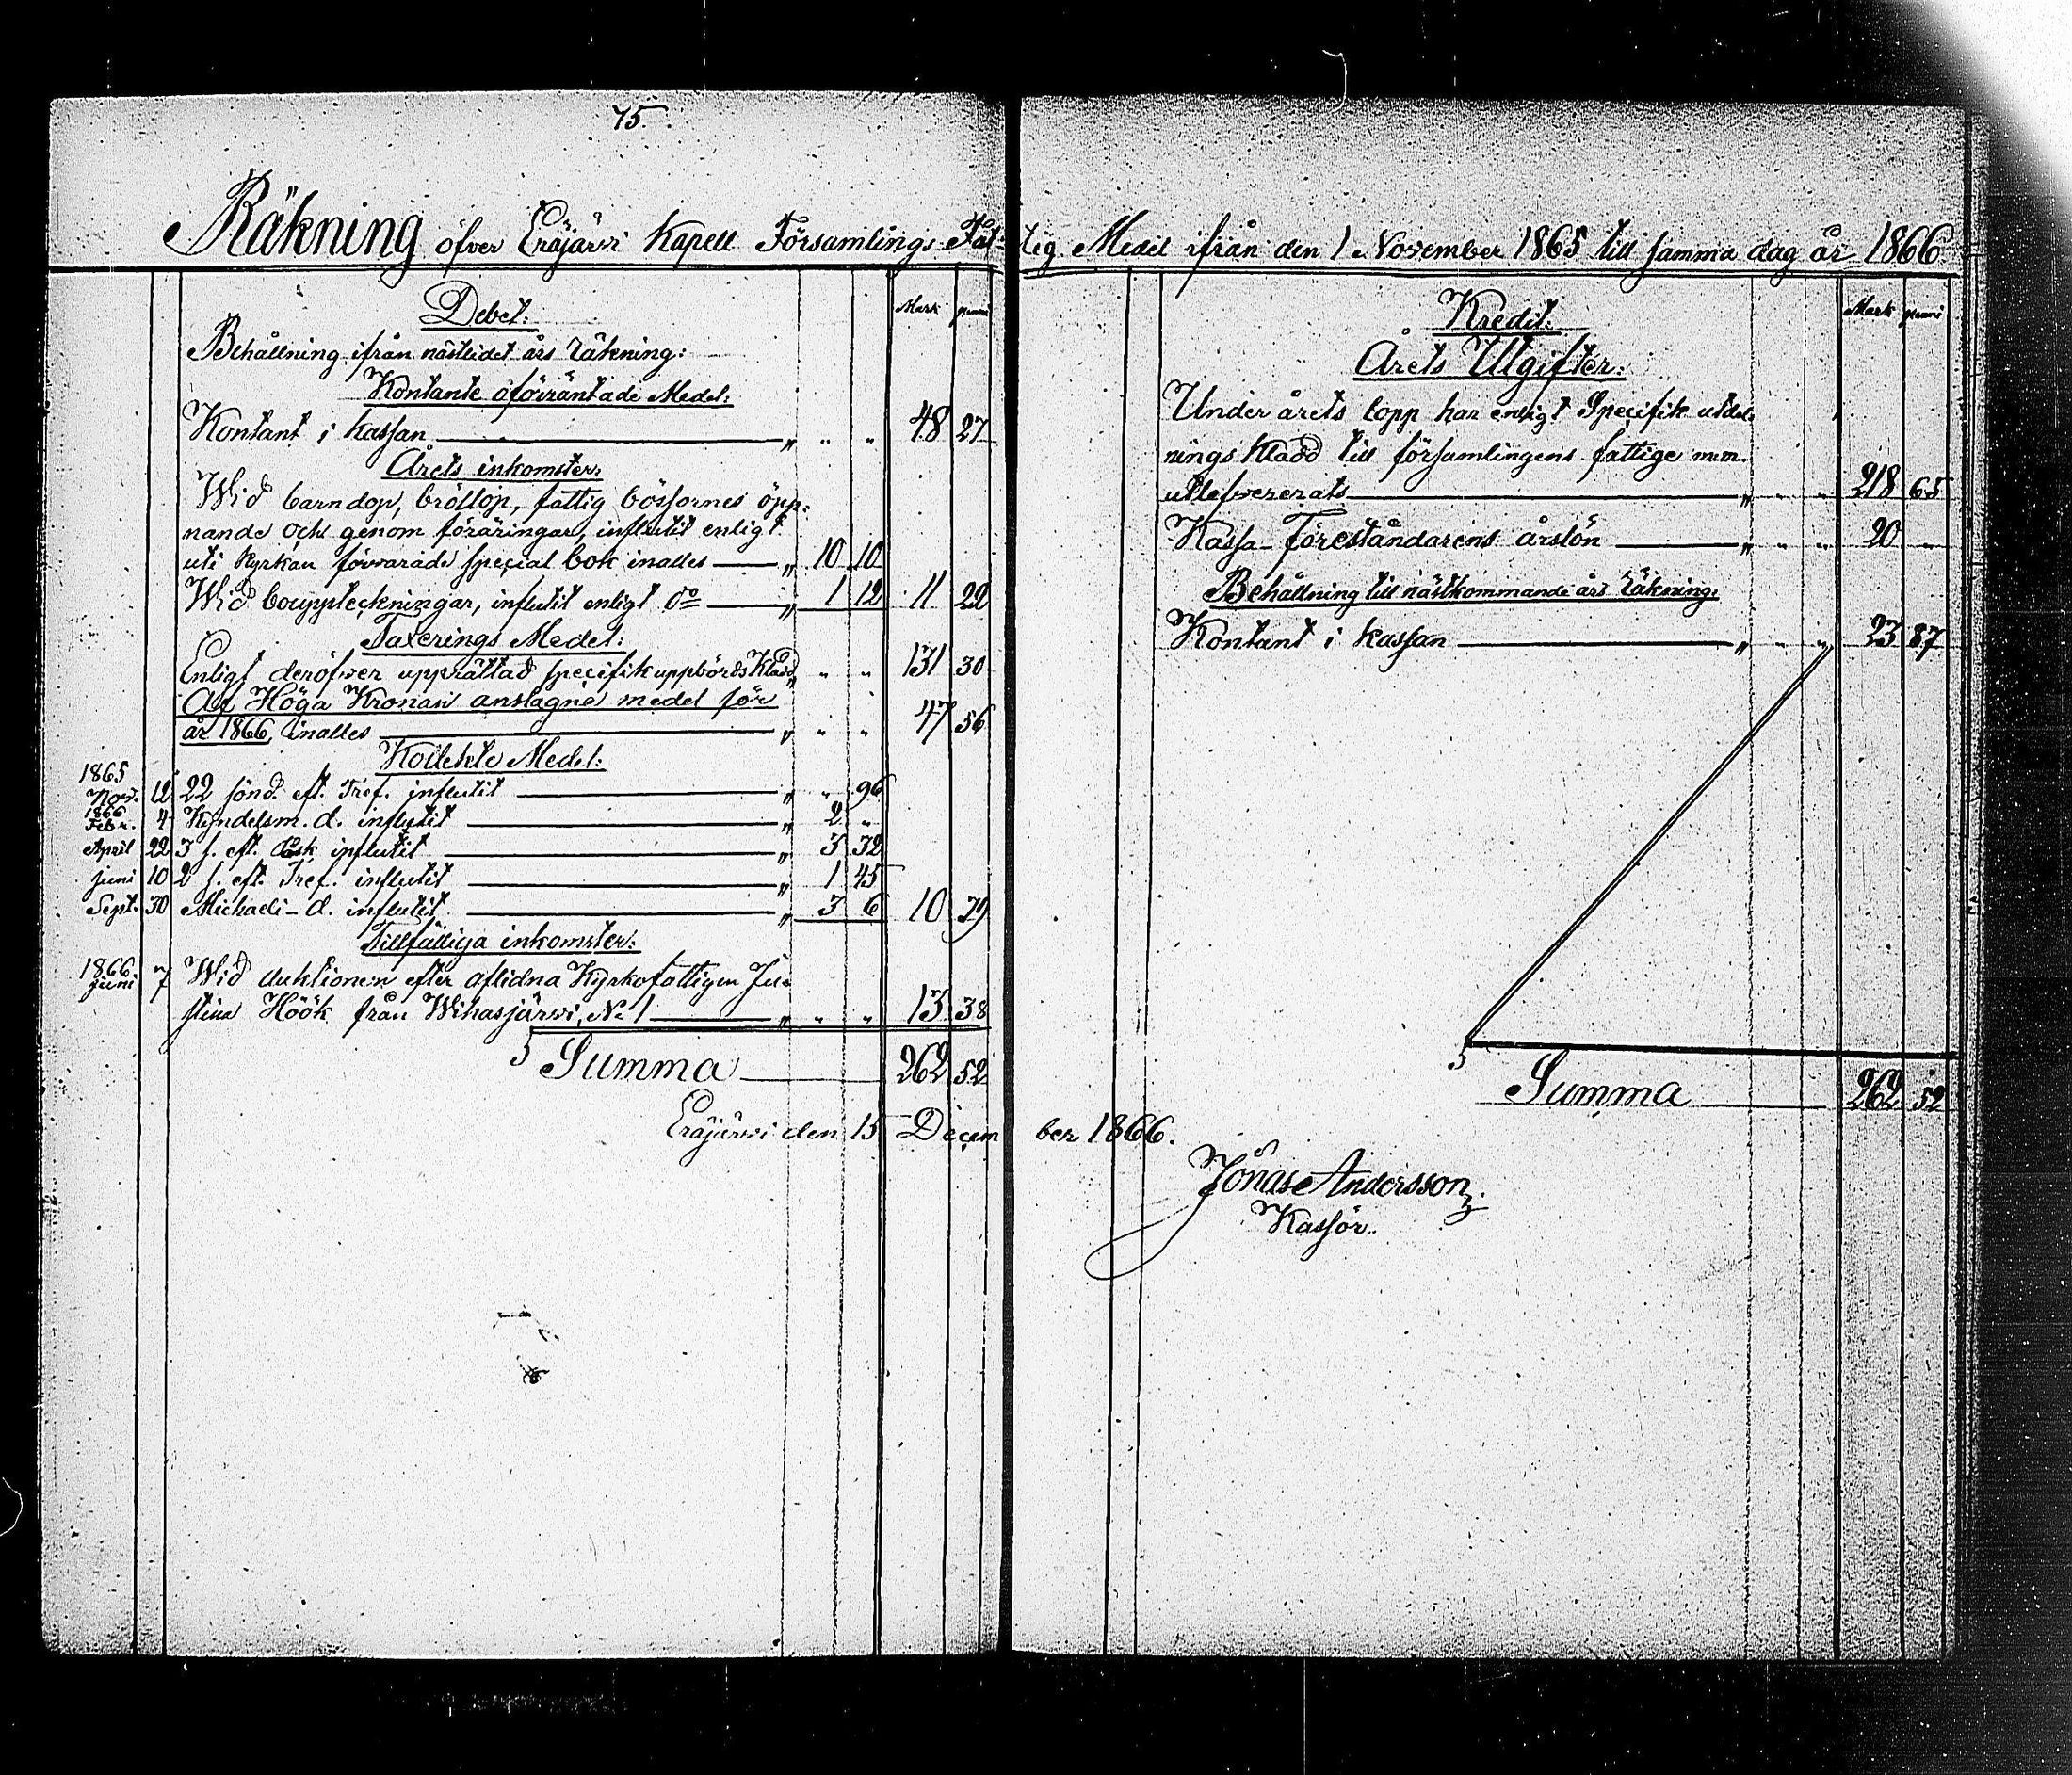 75.
Räkning öfver Eräjärvi Kapell Församlings Fat-
Debet:
Mark penni
Behållning ifrån nästlidet års räkning:
Kontante oförräntade Medel:
Kontant i kassan " " " 48 27
Årets inkomster:
Wid barndop, bröllop, fattig bössornes öpp-
nande och genom föräringar, influtit enligt
uti Kyrkan förvarade special bok inalles " 10 10
Wid bouppteckningar, influtit enligt do " 1 12 11 22
Taxerings Medel:
Enligt deröfwer upprättad specifik uppbörds Kladd " " " 131 30
Af Höga Kronan anslagne medel för
år 1866, inalles " " " 47 56
Kollekte Medel:
1865
Nov. 12 22 sönd. eft. Tref. influtit " " 96
1866
Febr. 4 Kyndelsm. d. influtit " 2 "
April 22 3 s. eft. Påsk influtit " 3 32
Juni 10 2 s. eft. Tref. influtit " 1 45
Sept. 30 Michaeli-d. influtit " 3 6 10 79
Tillfälliga inkomster:
1866
Juni 7 Wid auktionen efter aflidna Kyrkofattigen Ju-
stina Höök från Wihasjärvi, No 1 " " " 13 38
Summa 262 52
Eräjärvi den 15 Decem
tig Medel ifrån den 1 November 1865 till samma dag år 1866
Kredit:
Mark penni
Årets Utgifter:
Under årets lopp har enligt Specifik utdel-
nings Kladd till församlingens fattige
utlefwererats " " " 218 65
Kassa-Föreståndarens årslön " " " 20 "
Behållning till nästkommande års räkning:
Kontant i kassan " " " 23 87
Summa 262 52
ber 1866.
Jonas Andersson
Kassör.